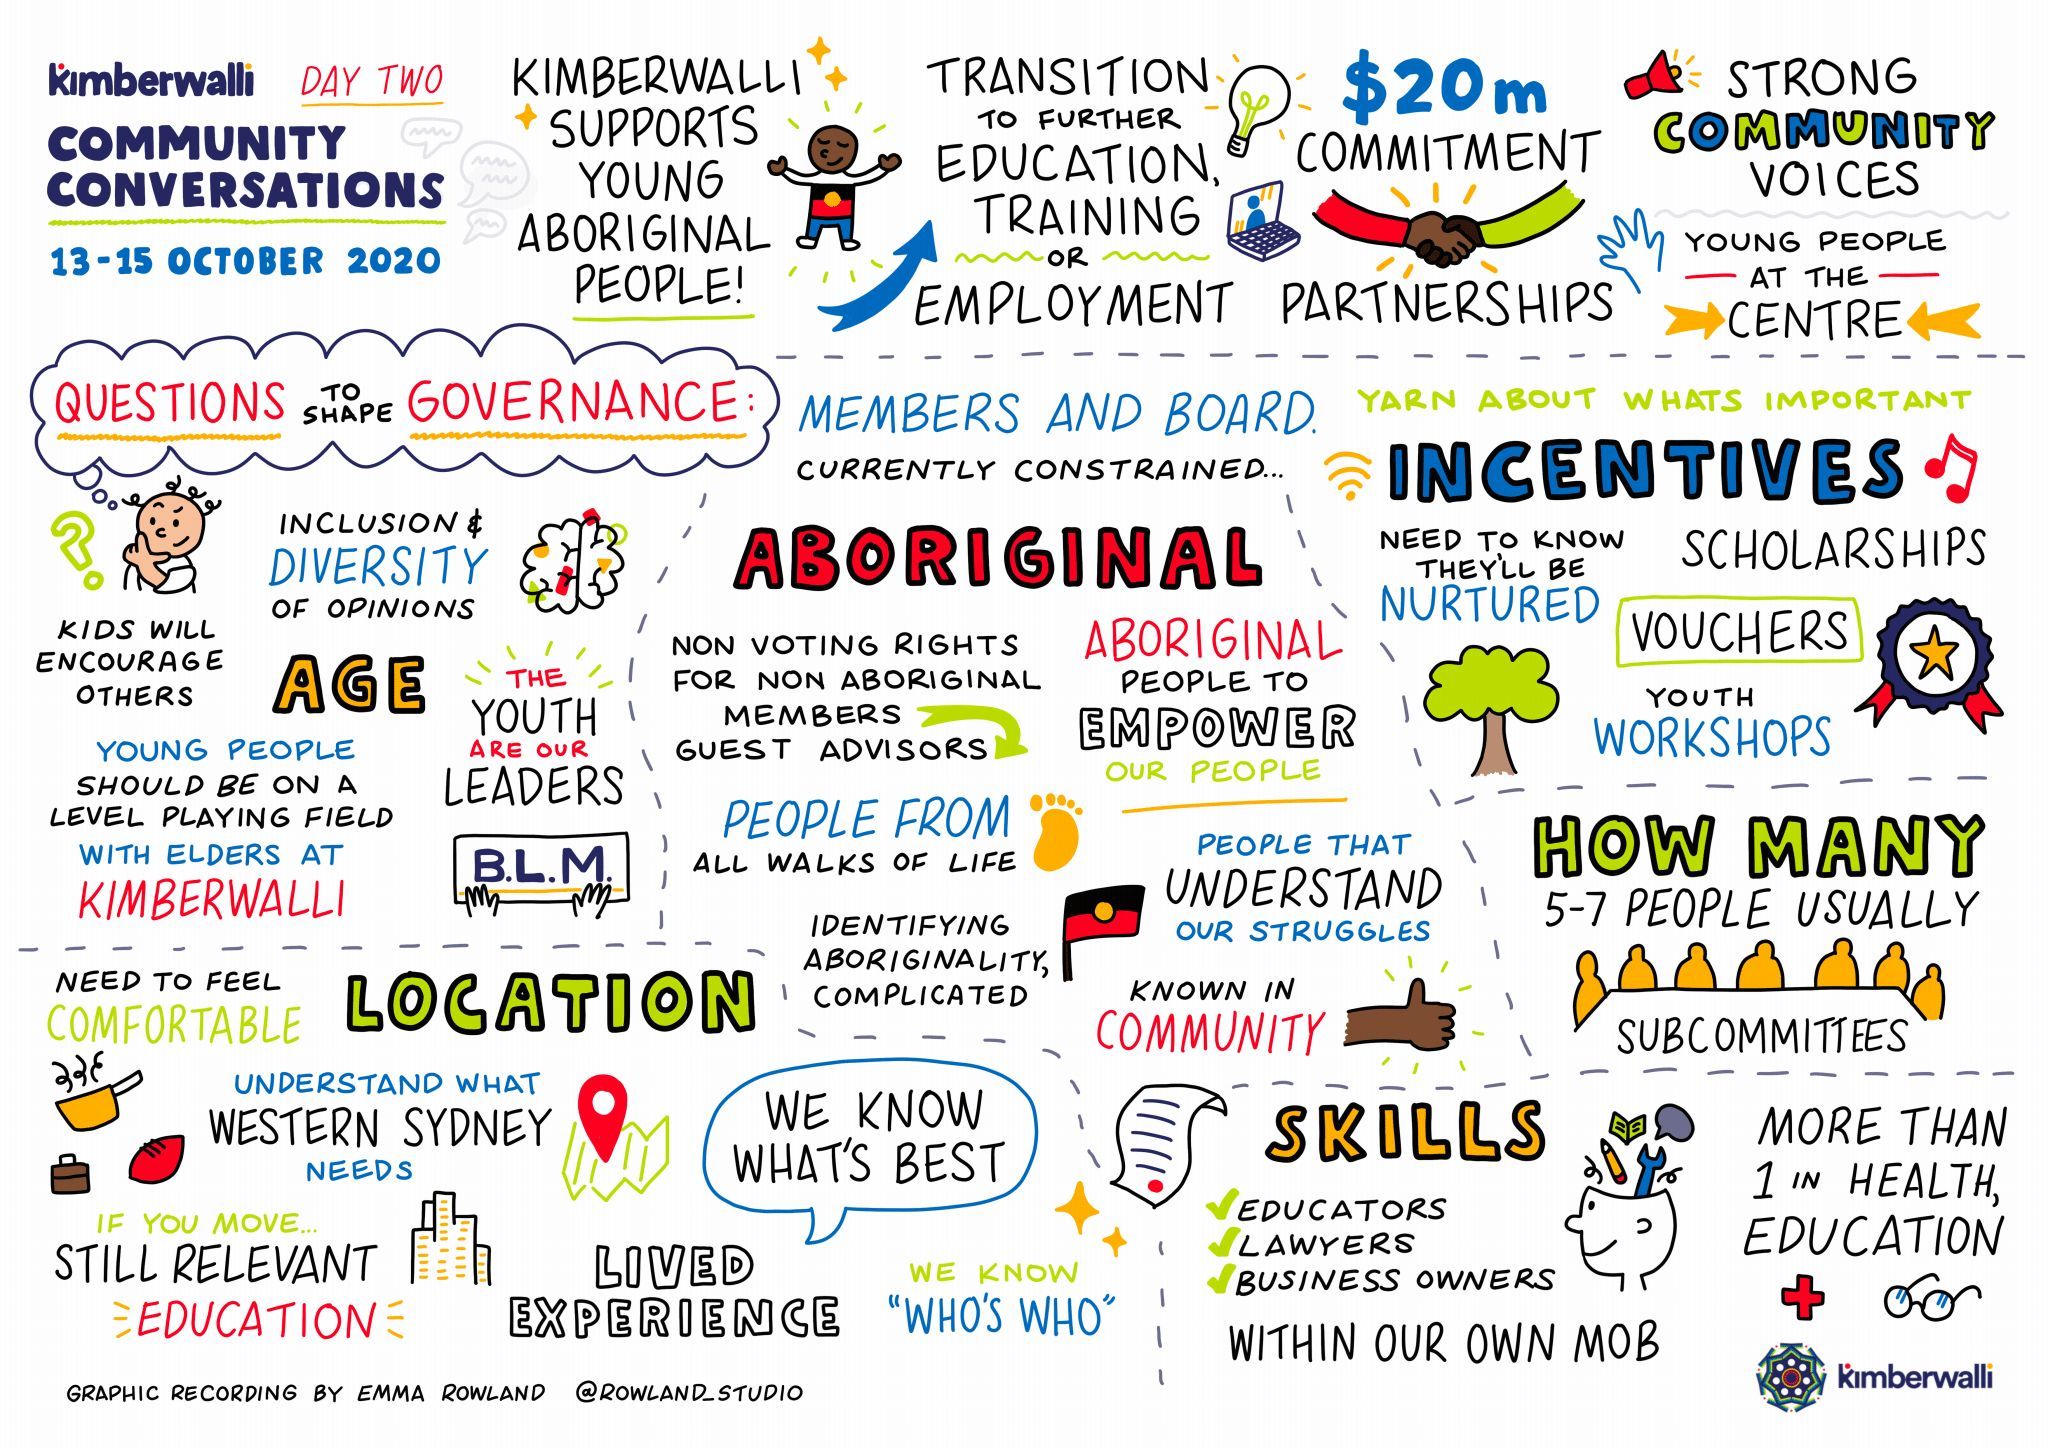 kimberwalli
DAY TWO
COMMUNITY
CONVERSATIONS
13-15 OCTOBER 2020
KIMBERWALLI
SUPPORTS
YOUNG
ABORIGINAL
PEOPLE!
TRANSITION
TO FURTHER
EDUCATION,
TRAINING
OR
EMPLOYMENT
$20m
COMMITMENT
PARTNERSHIPS
STRONG
COMMUNITY
VOICES
YOUNG PEOPLE
AT THE
CENTRE
QUESTIONS TO SHAPE GOVERNANCE:
KIDS WILL
ENCOURAGE
OTHERS
INCLUSION &
DIVERSITY
OF OPINIONS
AGE
THE
YOUTH
ARE OUR
LEADERS
YOUNG PEOPLE
SHOULD BE ON A
LEVEL PLAYING FIELD
WITH ELDERS AT
KIMBERWALLI
B.L.M.
MEMBERS AND BOARD.
CURRENTLY CONSTRAINED...
ABORIGINAL
NON VOTING RIGHTS
FOR NON ABORIGINAL
MEMBERS
GUEST ADVISORS
ABORIGINAL
PEOPLE TO
EMPOWER
OUR PEOPLE
PEOPLE FROM
ALL WALKS OF LIFE
PEOPLE THAT
UNDERSTAND
OUR STRUGGLES
IDENTIFYING
ABORIGINALITY,
COMPLICATED
KNOWN IN
COMMUNITY
YARN ABOUT WHATS IMPORTANT
INCENTIVES
NEED TO KNOW
THEY'LL BE
NURTURED
SCHOLARSHIPS
VOUCHERS
YOUTH
WORKSHOPS
HOW MANY
5-7 PEOPLE USUALLY
SUBCOMMITTEES
NEED TO FEEL
COMFORTABLE
LOCATION
UNDERSTAND WHAT
WESTERN SYDNEY
NEEDS
IF YOU MOVE...
STILL RELEVANT
EDUCATION
WE KNOW
WHAT'S BEST
LIVED
EXPERIENCE
WE KNOW
"WHO'S WHO"
SKILLS
EDUCATORS
LAWYERS
BUSINESS OWNERS
WITHIN OUR OWN MOB
MORE THAN
1 IN HEALTH,
EDUCATION
GRAPHIC RECORDING BY EMMA ROWLAND @ROWLAND_STUDIO
kimberwalli